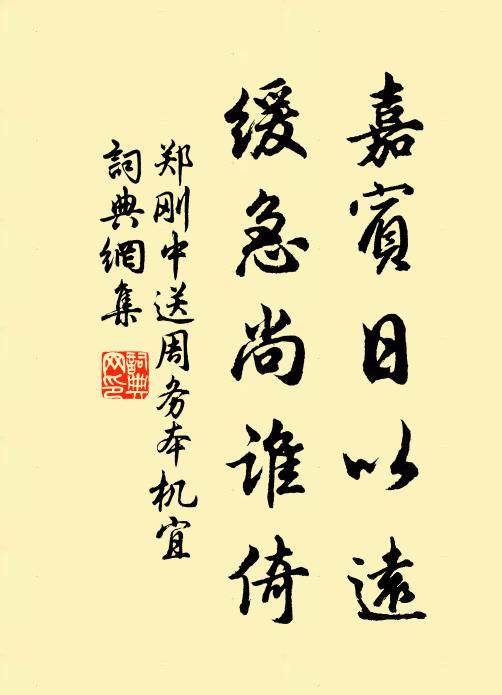 嘉賓日以遠
缓急尚谁倚
郑刚中送周务本机宜
詞典網集
詞典网印